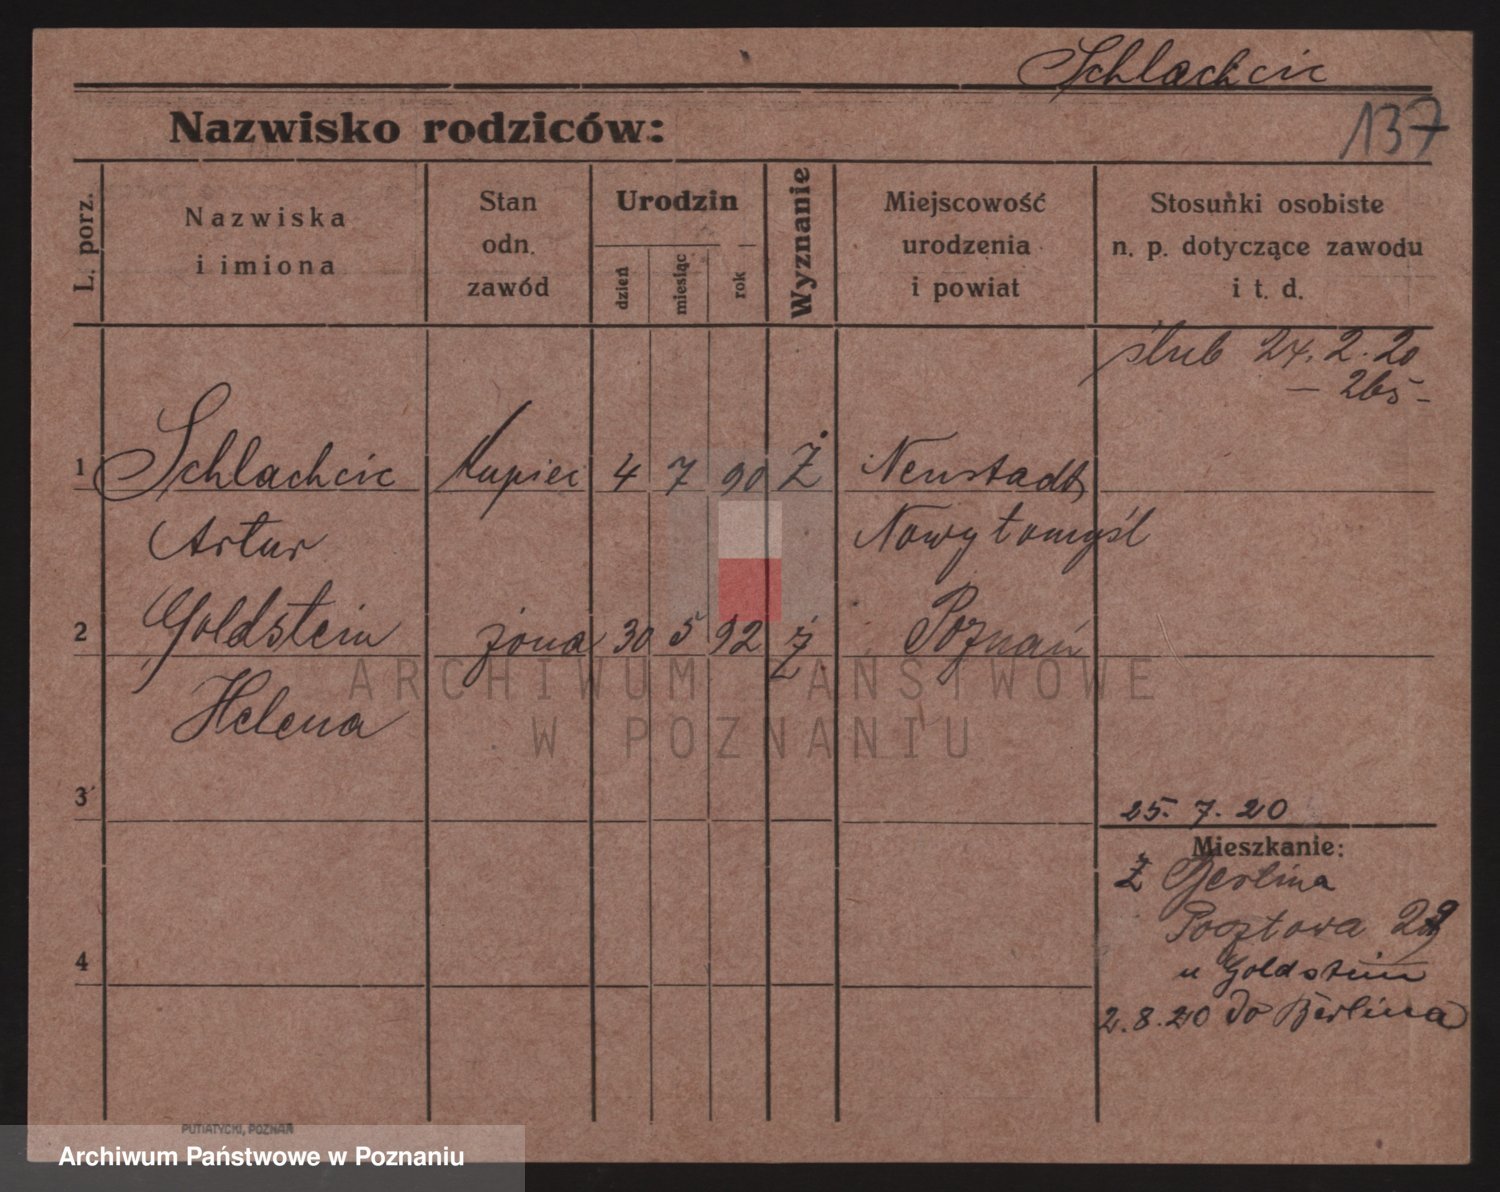 Schlachcic
137
Nazwisko rodziców:
L. porz.
Nazwiska
i imiona
Stan
odn.
zawód
Urodzin
dzień
miesiąc
rok
Wyznanie
Miejscowość
urodzenia
i powiat
Stosunki osobiste
n. p. dotyczące zawodu
i t. d.
ślub 24. 2. 20
— 265 -
1 Schlachcic Kupiec 4 7 90 Ż Neustadt
Artur Nowytomyśl
2 Goldstein żona 30 5 92 Ż Poznań
Helena
ARCHIWUM PAŃSTWOWE
W POZNANIU
3
25. 7. 20
Mieszkanie:
Z Berlina
Pocztowa
4
u Goldstein
2.8.20 do Berlina
PUTIATYCKI, POZNAŃ
Archiwum Państwowe w Poznaniu